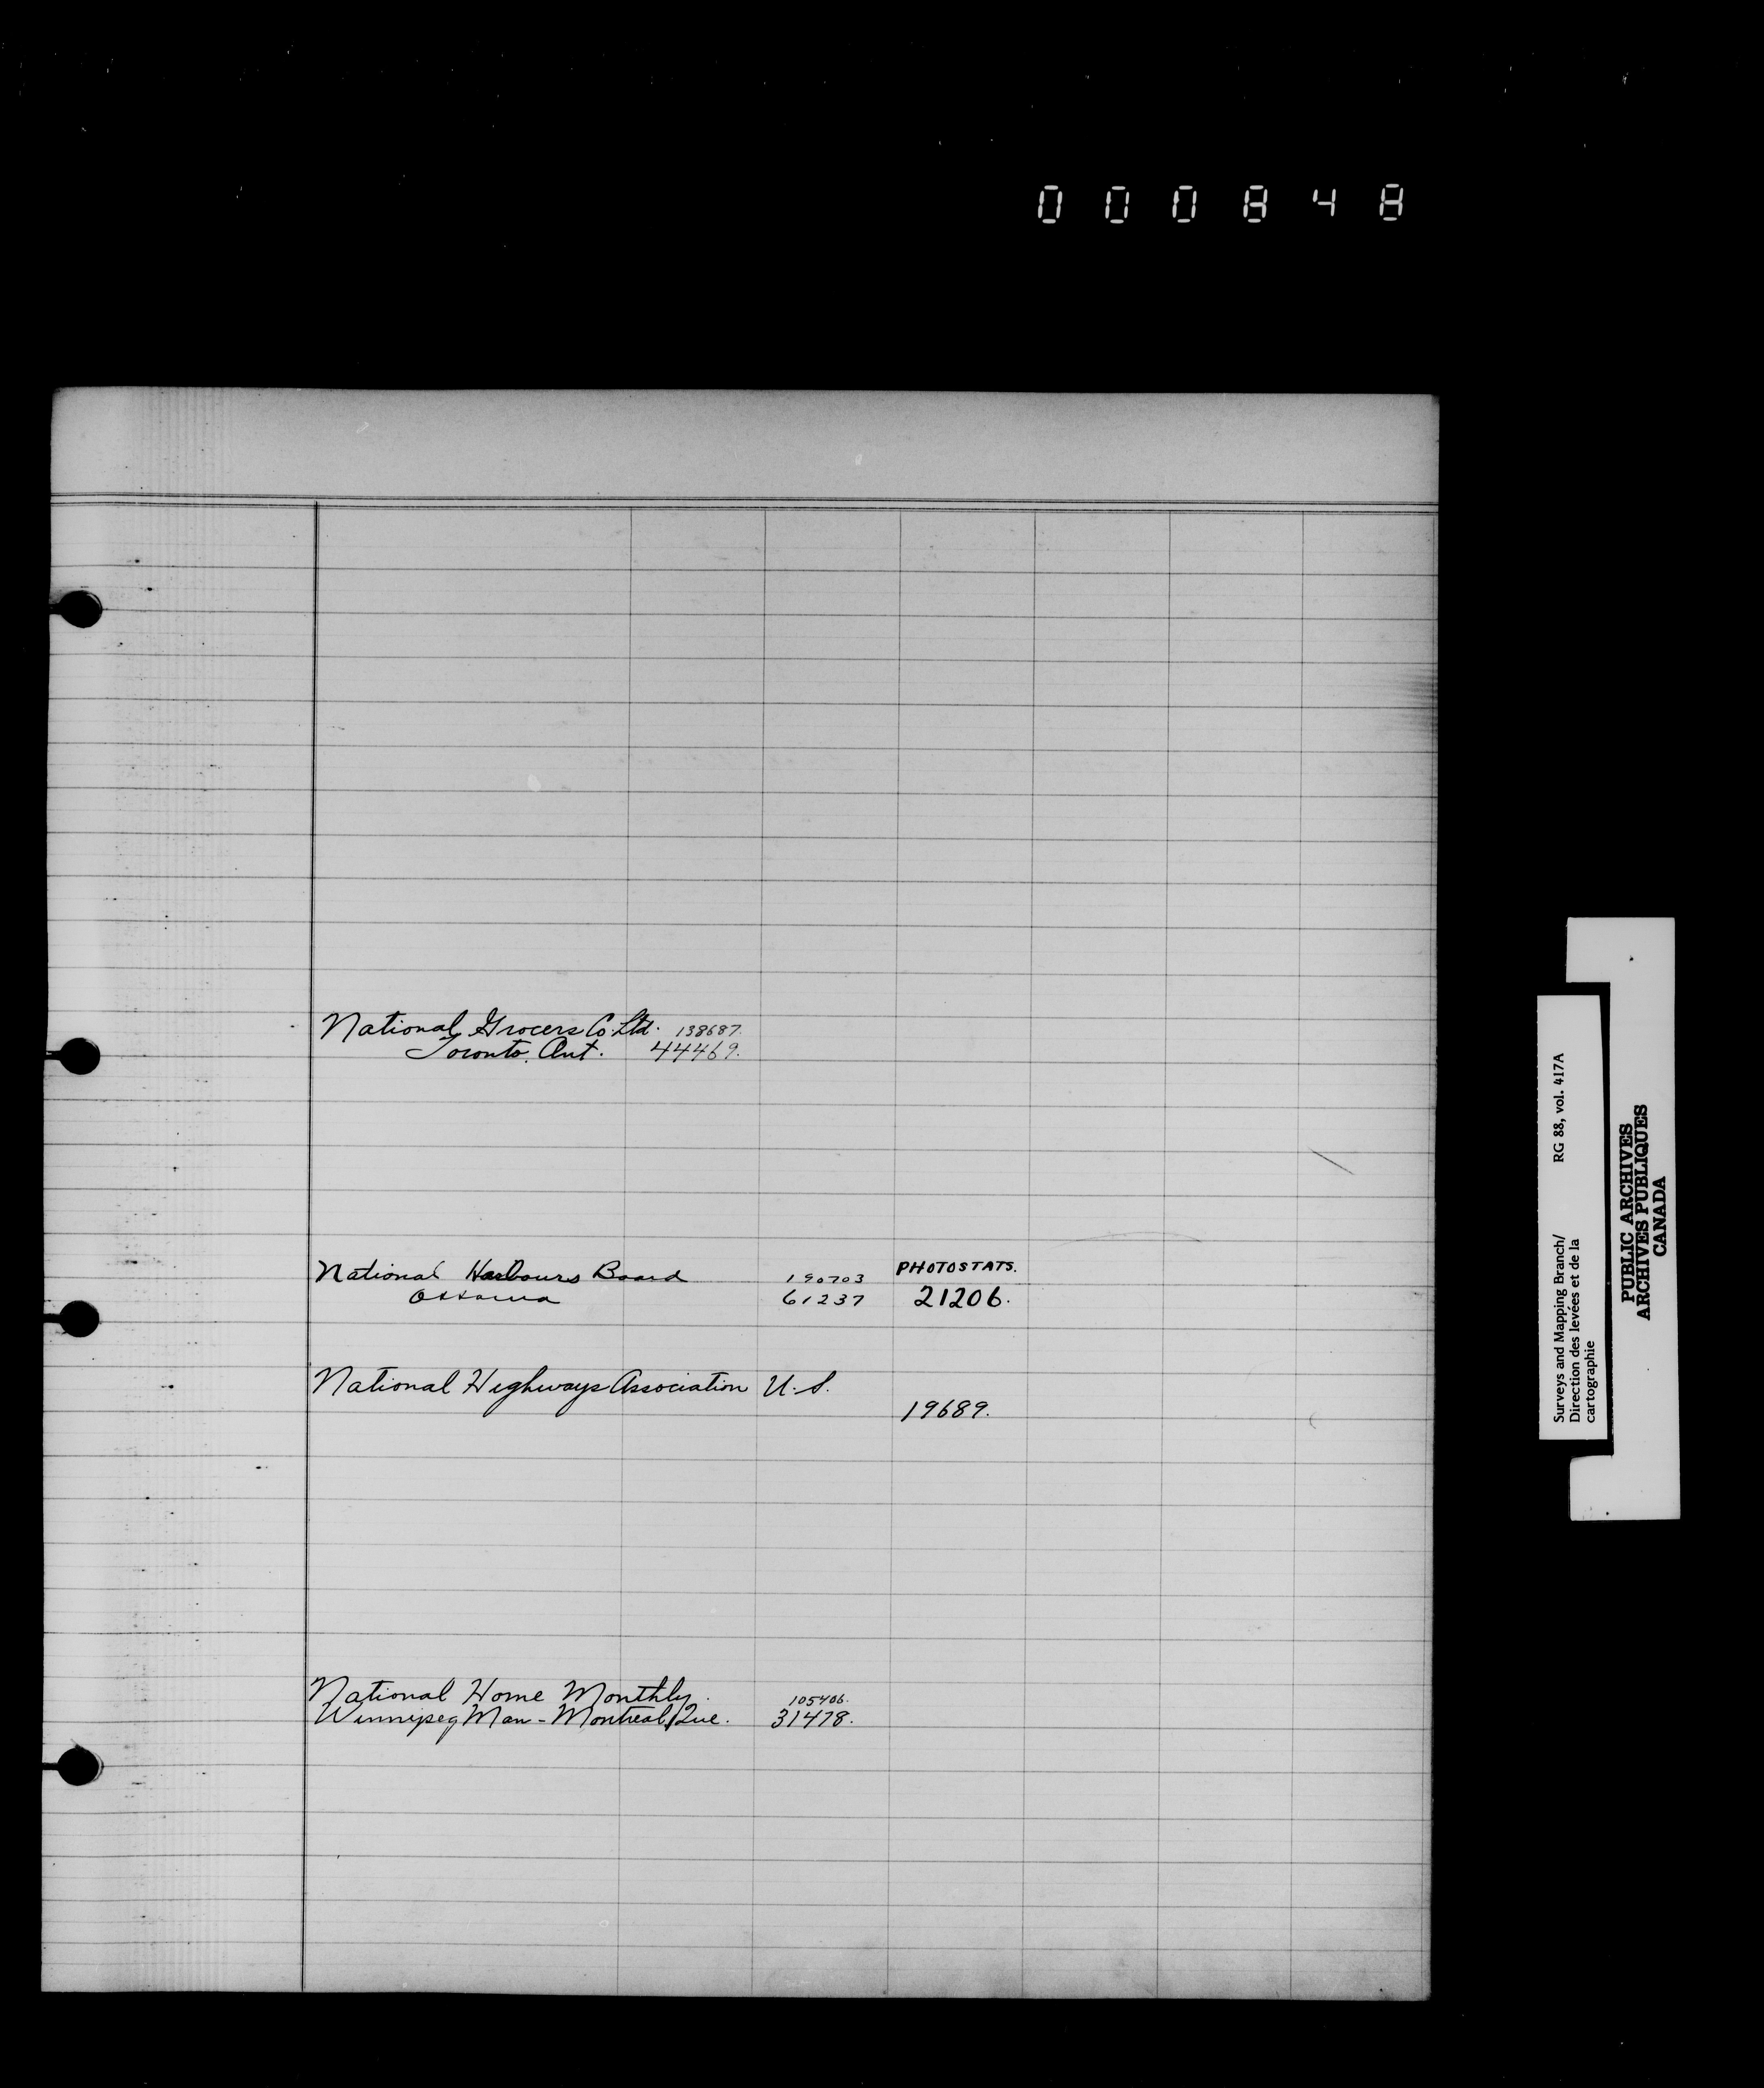 000848
National Grocers Co. Ltd. 138687.
Toronto, Ont. 44469.
National Harbours Board 190703 PHOTOSTATS.
Ottawa 61237 21206.
National Highways Association U.S.
19689.
National Home Monthly. 105406.
Winnipeg Man - Montreal, Que. 31478.
Surveys and Mapping Branch/ RG 88, vol. 417A
Direction des levées et de la
cartographie
PUBLIC ARCHIVES
ARCHIVES PUBLIQUES
CANADA